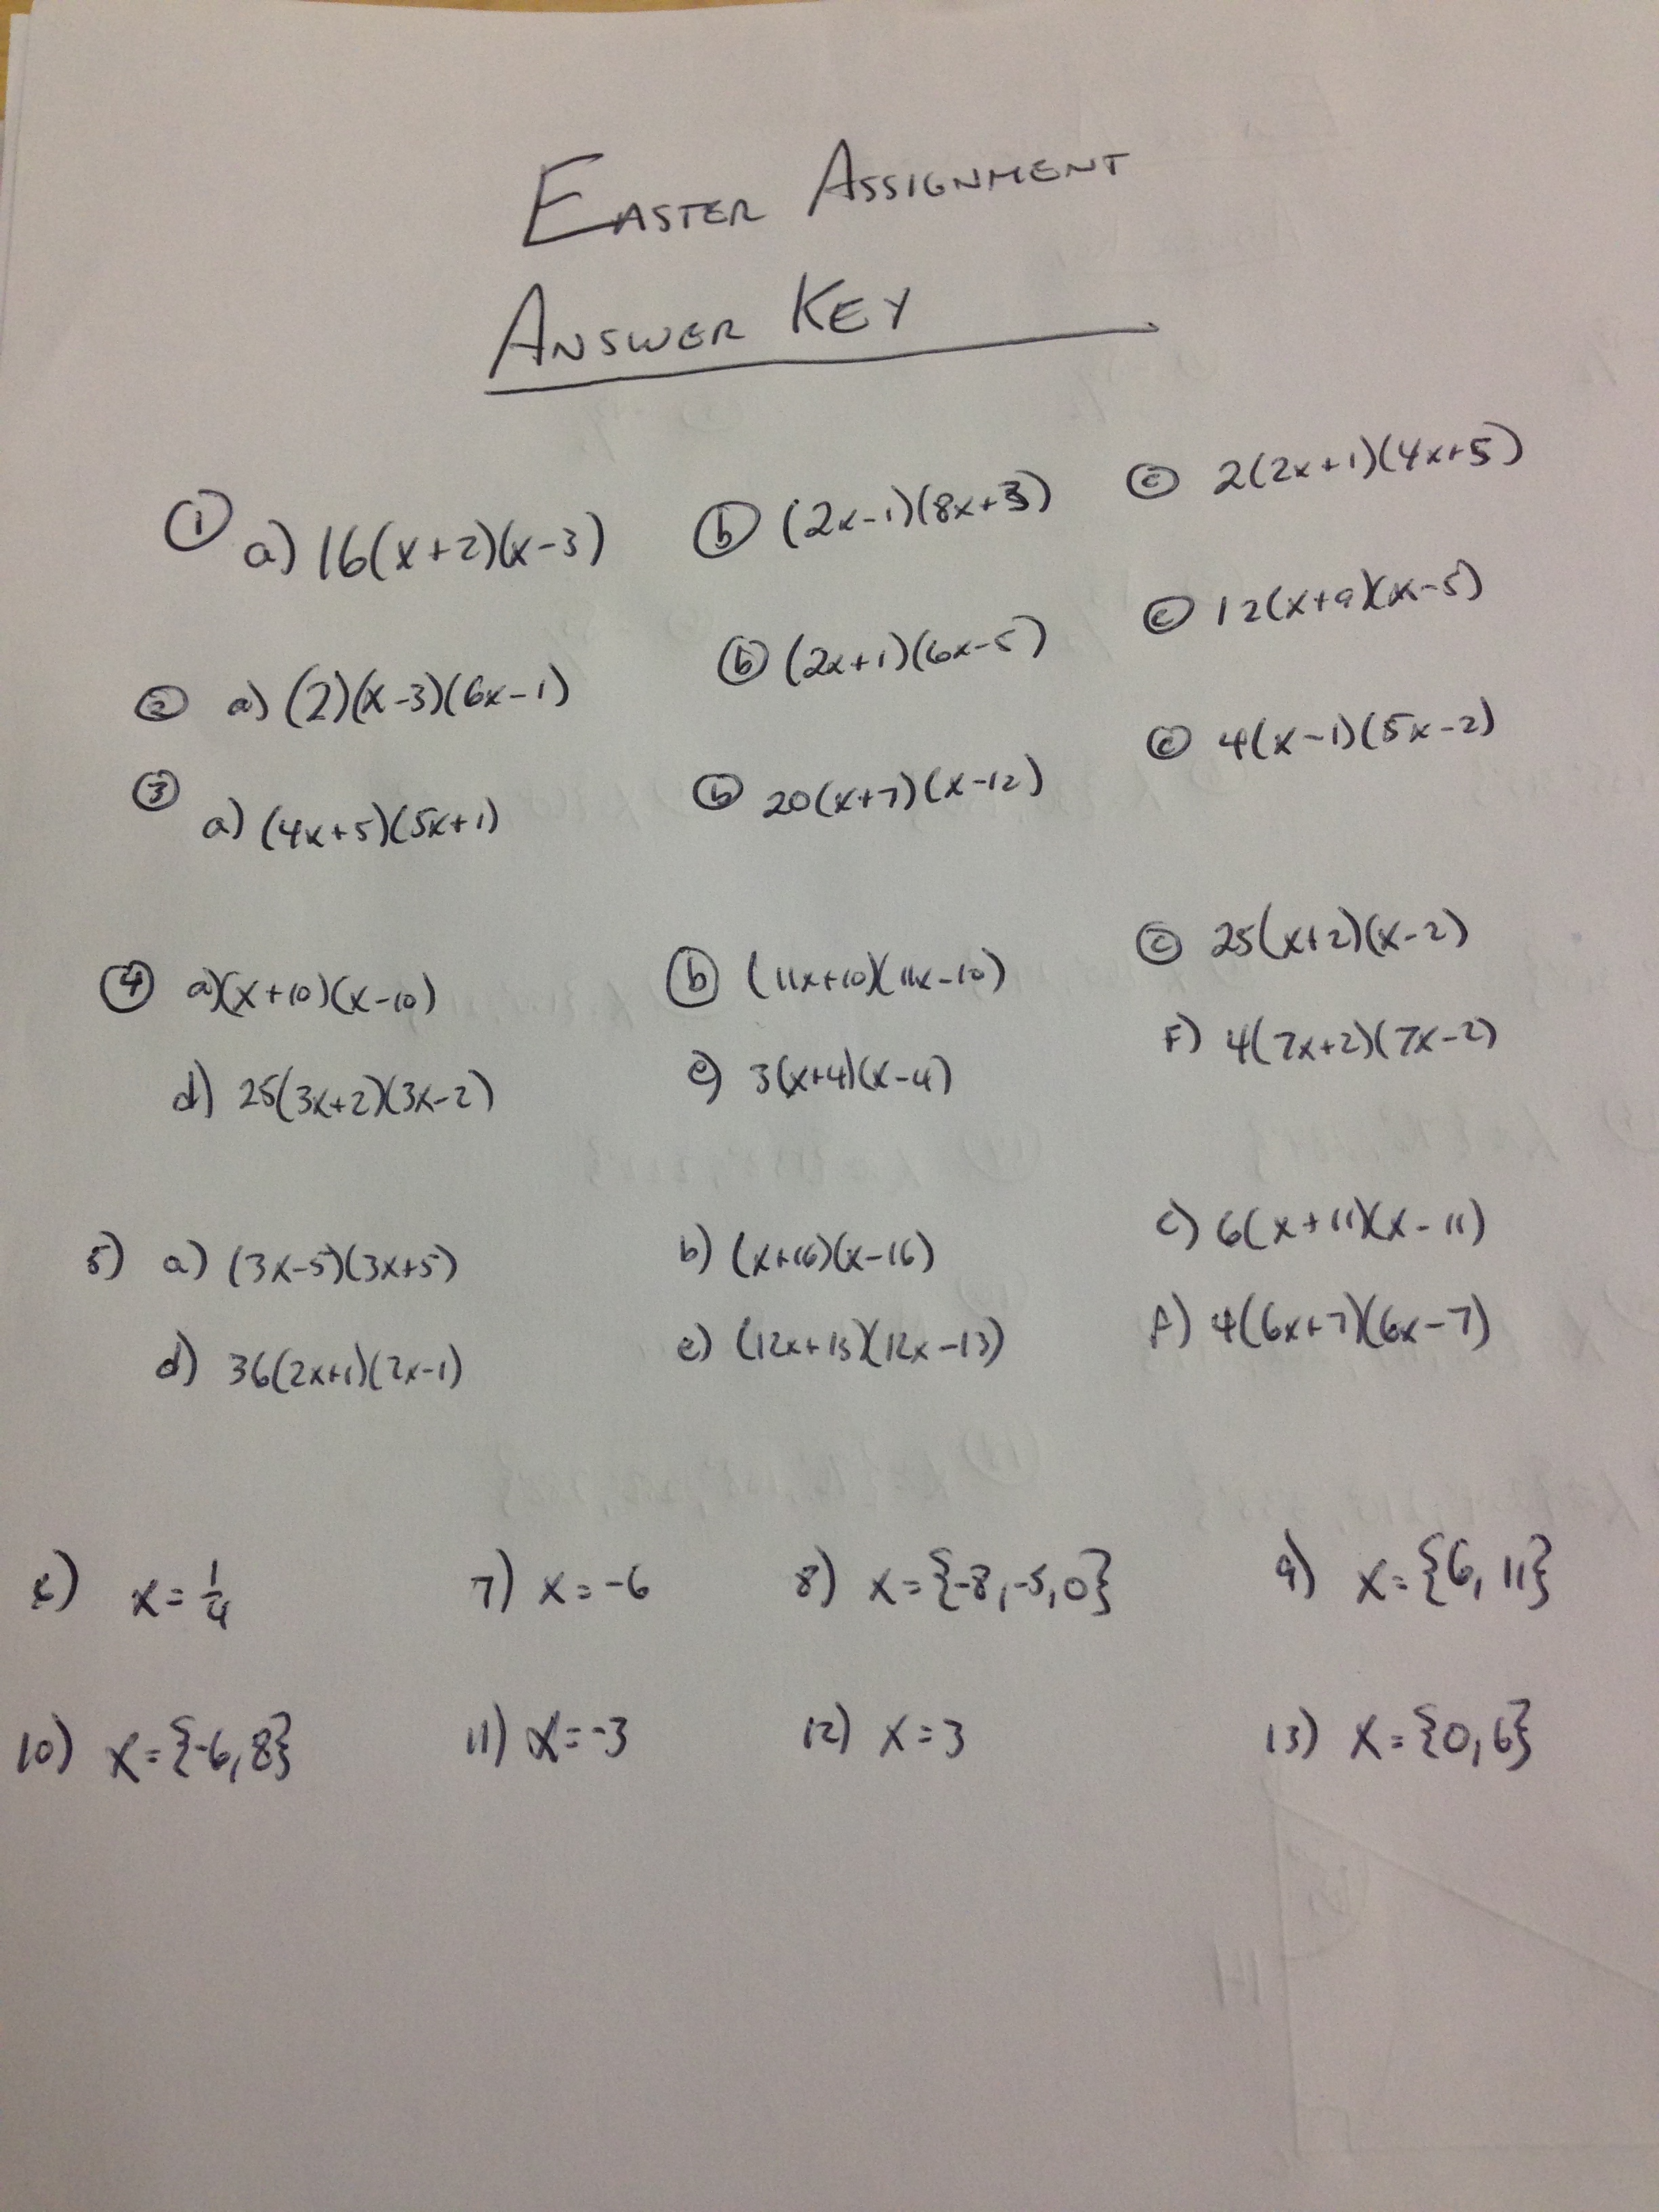 EASTER ASSIGNMENT
ANSWER KEY
① a) 16(x+2)(x-3) ⓑ (2x-1)(8x+3) ⓒ 2(2x+1)(4x+5)
② a) (2)(x-3)(6x-1) ⓑ (2x+1)(6x-5) ⓒ 12(x+9)(x-5)
③ a) (4x+5)(5x+1) ⓑ 20(x+7)(x-12) ⓒ 4(x-1)(5x-2)
④ a)(x+10)(x-10) ⓑ (11x+10)(11x-10) ⓒ 25(x+2)(x-2)
d) 25(3x+2)(3x-2) e) 3(x+4)(x-4) F) 4(7x+2)(7x-2)
5) a) (3x-5)(3x+5) b) (x+16)(x-16) c) 6(x+11)(x-11)
d) 36(2x+1)(2x-1) e) (12x+13)(12x-13) f) 4(6x+7)(6x-7)
6) x=1/4 7) x=-6 8) x={-8,-5,0} 9) x={6,11}
10) x={-6,8} 11) x=-3 12) x=3 13) x={0,6}